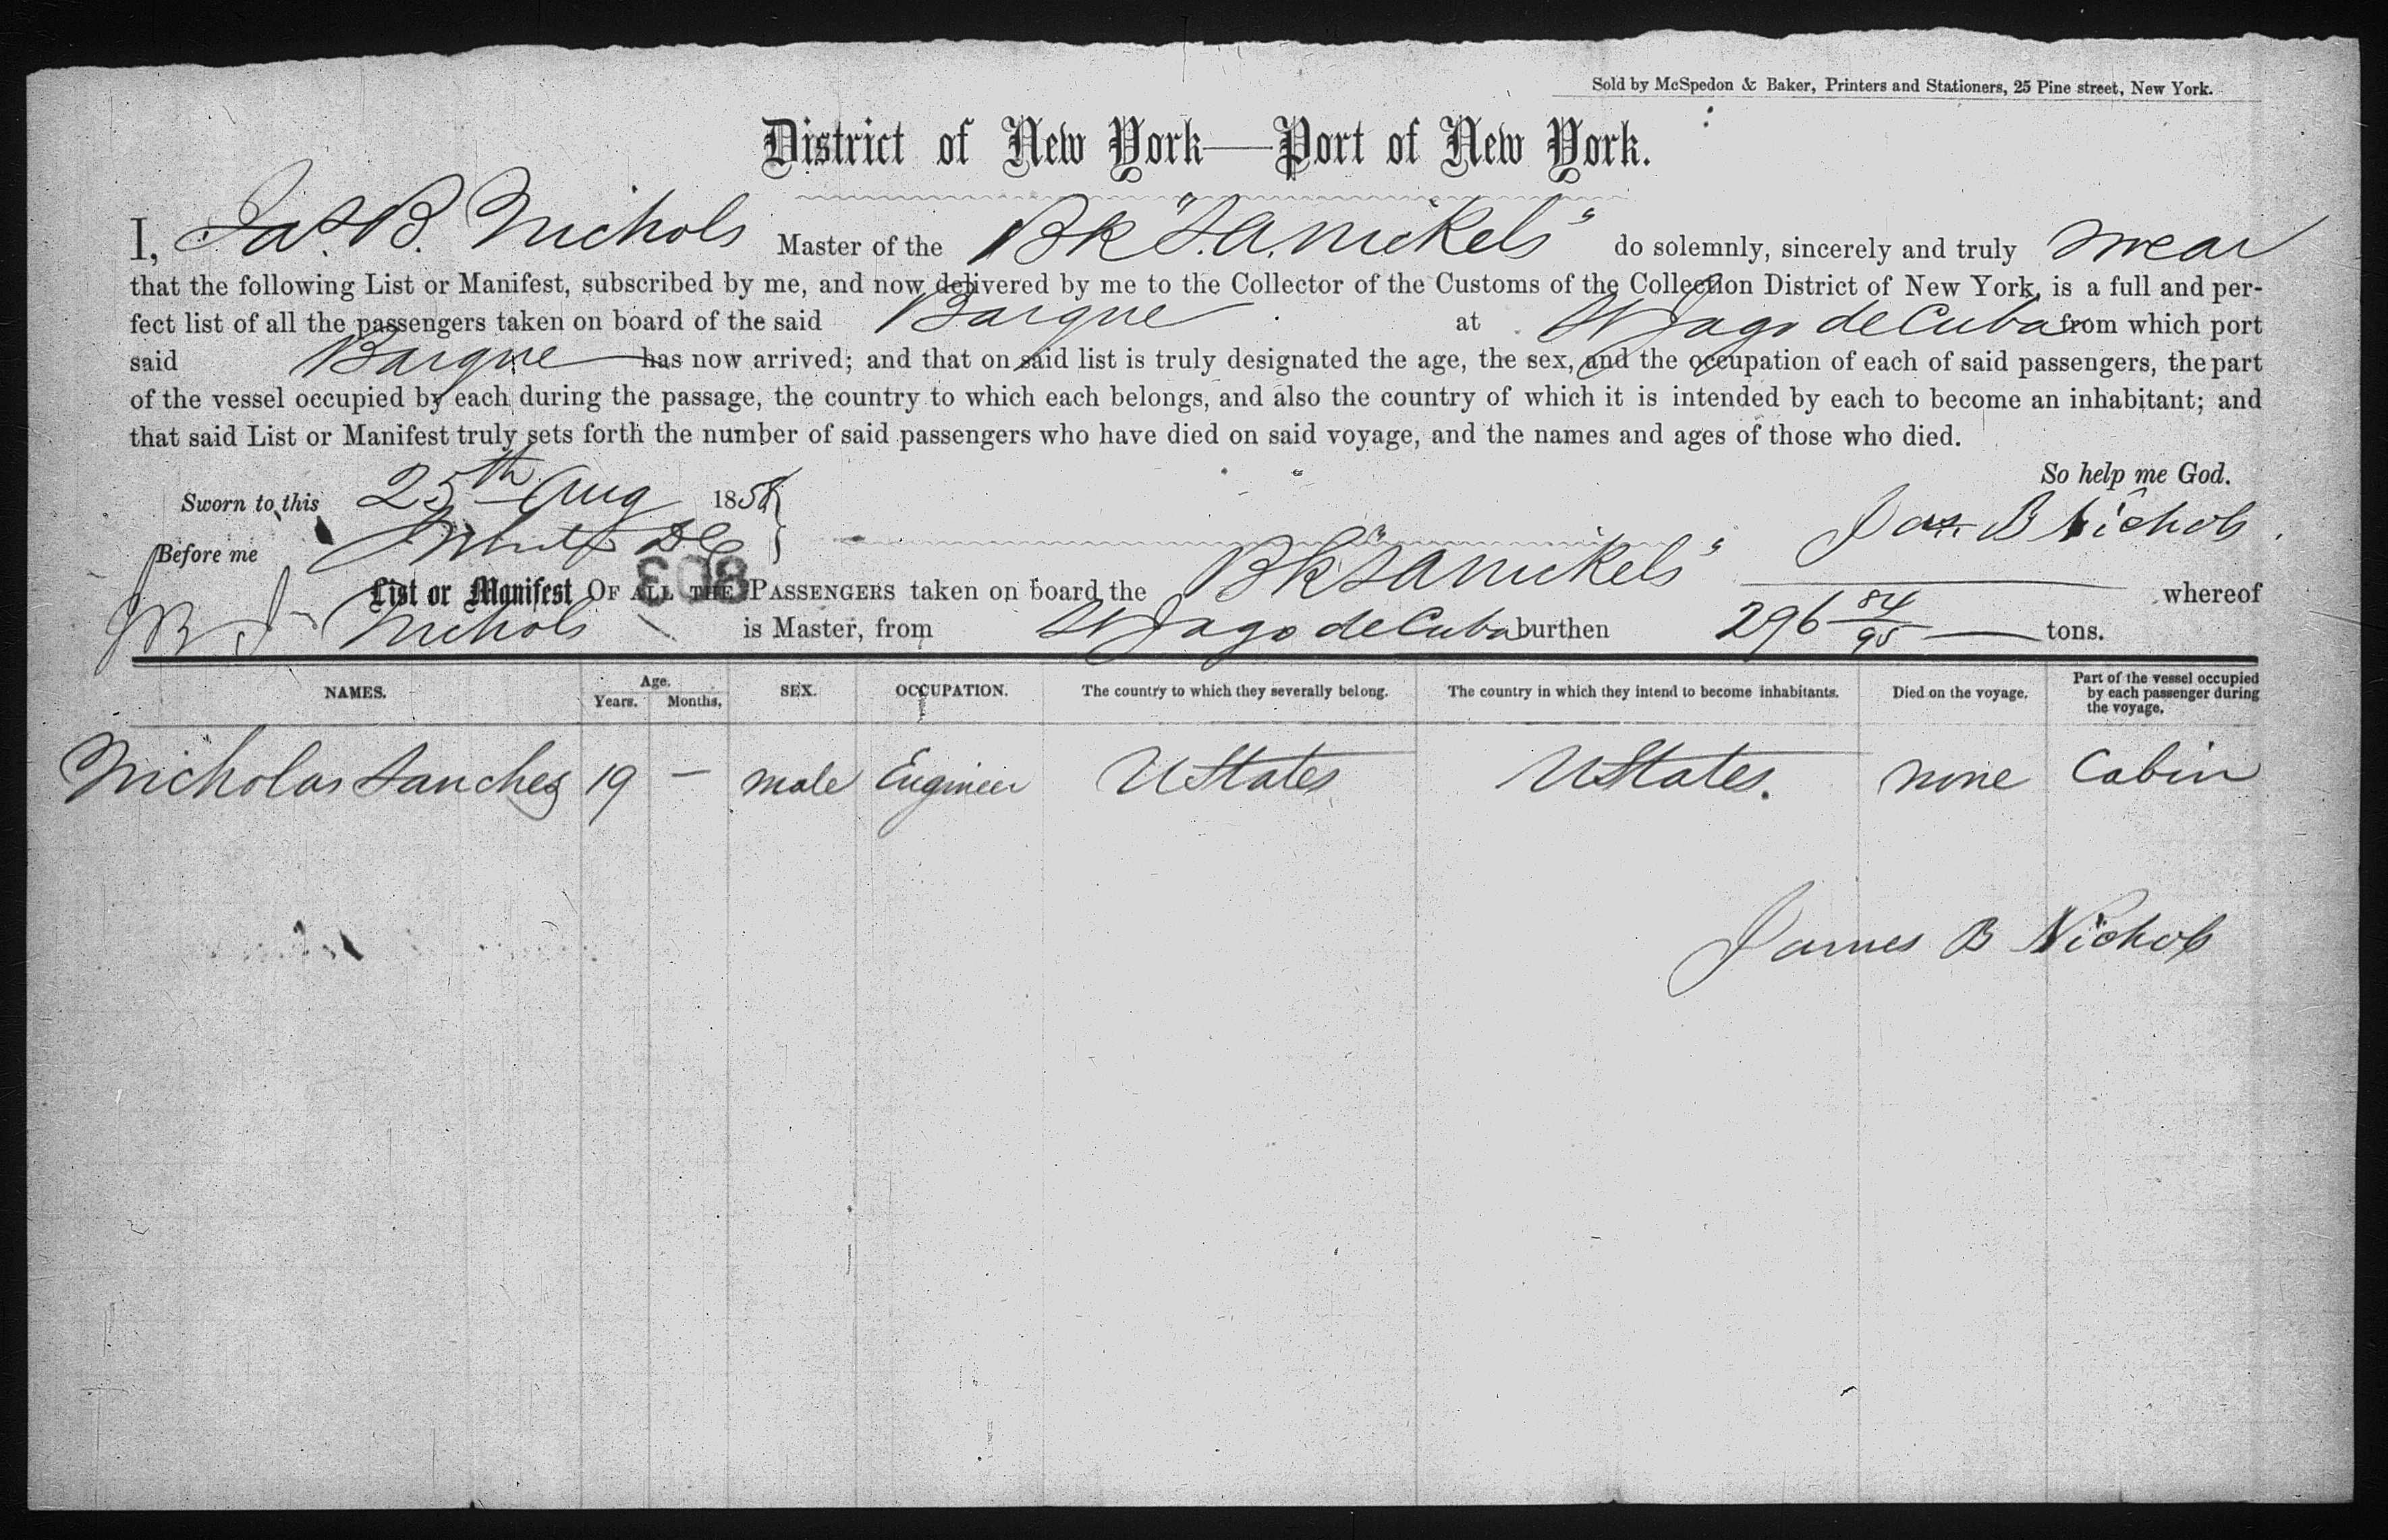 Sold by McSpedon & Baker, Printers and Stationers, 25 Pine street, New York.
District of New York—Port of New York.
I, Jas. B. Nichols Master of the Bk "S. A. Nickels" do solemnly, sincerely and truly swear
that the following List or Manifest, subscribed by me, and now delivered by me to the Collector of the Customs of the Collection District of New York, is a full and per-
fect list of all the passengers taken on board of the said Barque at St Jago de Cuba from which port
said Barque has now arrived; and that on said list is truly designated the age, the sex, and the occupation of each of said passengers, the part
of the vessel occupied by each during the passage, the country to which each belongs, and also the country of which it is intended by each to become an inhabitant; and
that said List or Manifest truly sets forth the number of said passengers who have died on said voyage, and the names and ages of those who died.
So help me God.
Sworn to this 25th Aug 1858
Jas. B Nichols
Before me
808
List or Manifest OF ALL THE PASSENGERS taken on board the Bk "S A Nickels" whereof
J B Nichols is Master, from St Jago de Cuba burthen 296 84/95 tons.
NAMES. Age. Years. Months. SEX. OCCUPATION. The country to which they severally belong. The country in which they intend to become inhabitants. Died on the voyage. Part of the vessel occupied by each passenger during the voyage.
Nicholas Sanches 19 — male Engineer U States U States. none Cabin
James B Nichols